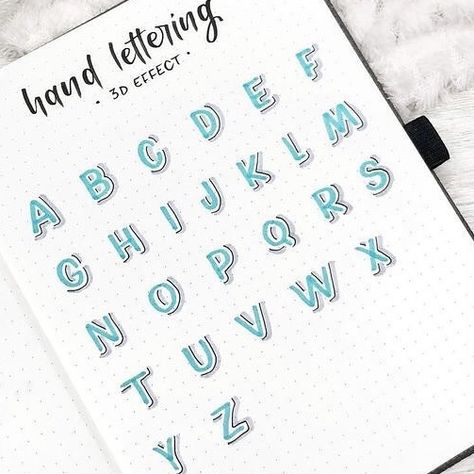 hand lettering
· 3D EFFECT ·
A B C D E F
G H I J K L M
N O P Q R S
T U V W X
Y Z